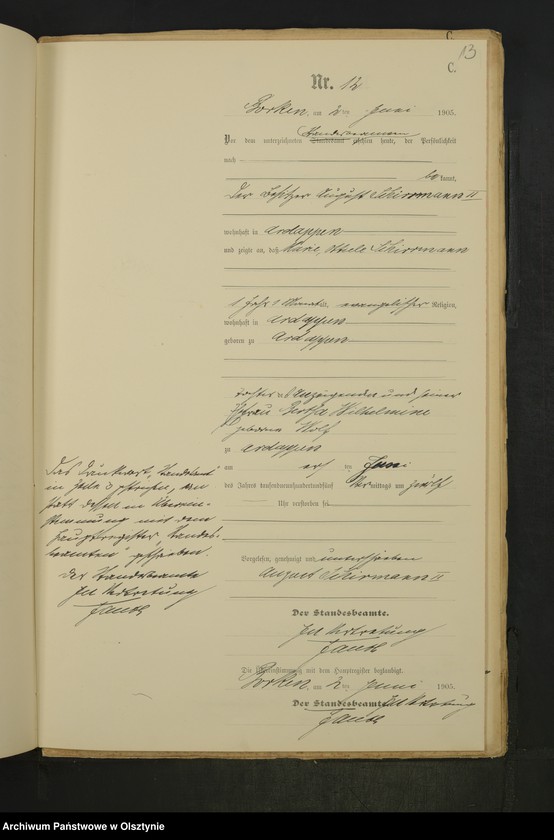 C.
13
C.
Nr. 12
Borken, am 2ten Juni 1905.
Vor dem unterzeichneten Standesbeamten Standesamt erschien heute, der Persönlichkeit
nach
bekannt,
der Besitzer August Schirrmann II
wohnhaft in Ardappen
und zeigte an, daß Marie, Schirrmann
1 Jahr 1 Monat alt, evangelischer Religion,
wohnhaft in Ardappen
geboren zu Ardappen
Tochter des Anzeigenden und seiner
Ehefrau Bertha Wilhelmine
geborene Wolf
zu Ardappen
am ersten Juni
des Jahres tausendneunhundertundfünf Vormittags um zwölf
Uhr verstorben sei.
Vorgelesen, genehmigt und unterschrieben
August Schirrmann II
Der Standesbeamte.
In Vertretung
Die Übereinstimmung mit dem Hauptregister beglaubigt.
Borken, am 2ten Juni 1905.
Der Standesbeamte. In Vertretung
Das Druckwort „Standesamt“
in Zeile 3 gestrichen, an-
statt dessen in Überein-
stimmung mit dem
Hauptregister „Standes-
beamten“ geschrieben.
Der Standesbeamte
In Vertretung
Archiwum Państwowe w Olsztynie